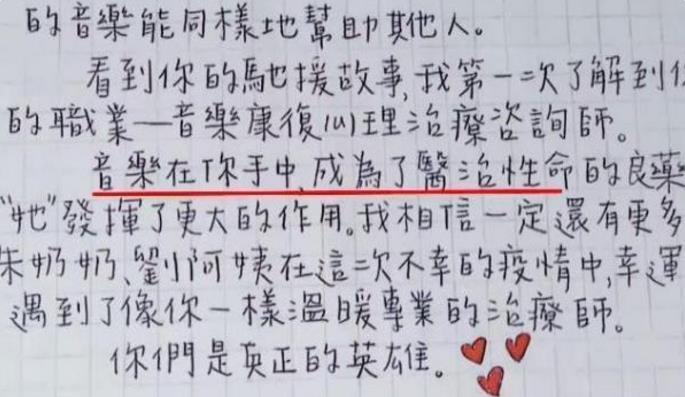 的音樂能同樣地幫助其他人。
看到你的馳援故事,我第一次了解到你
的職業—音樂康復心理治療諮詢師。
音樂在你手中,成為了醫治性命的良藥
"牠"發揮了更大的作用。我相信一定還有更多
朱奶奶、劉阿姨在這次不幸的疫情中,幸運
遇到了像你一樣溫暖專業的治療師。
你們是真正的英雄。